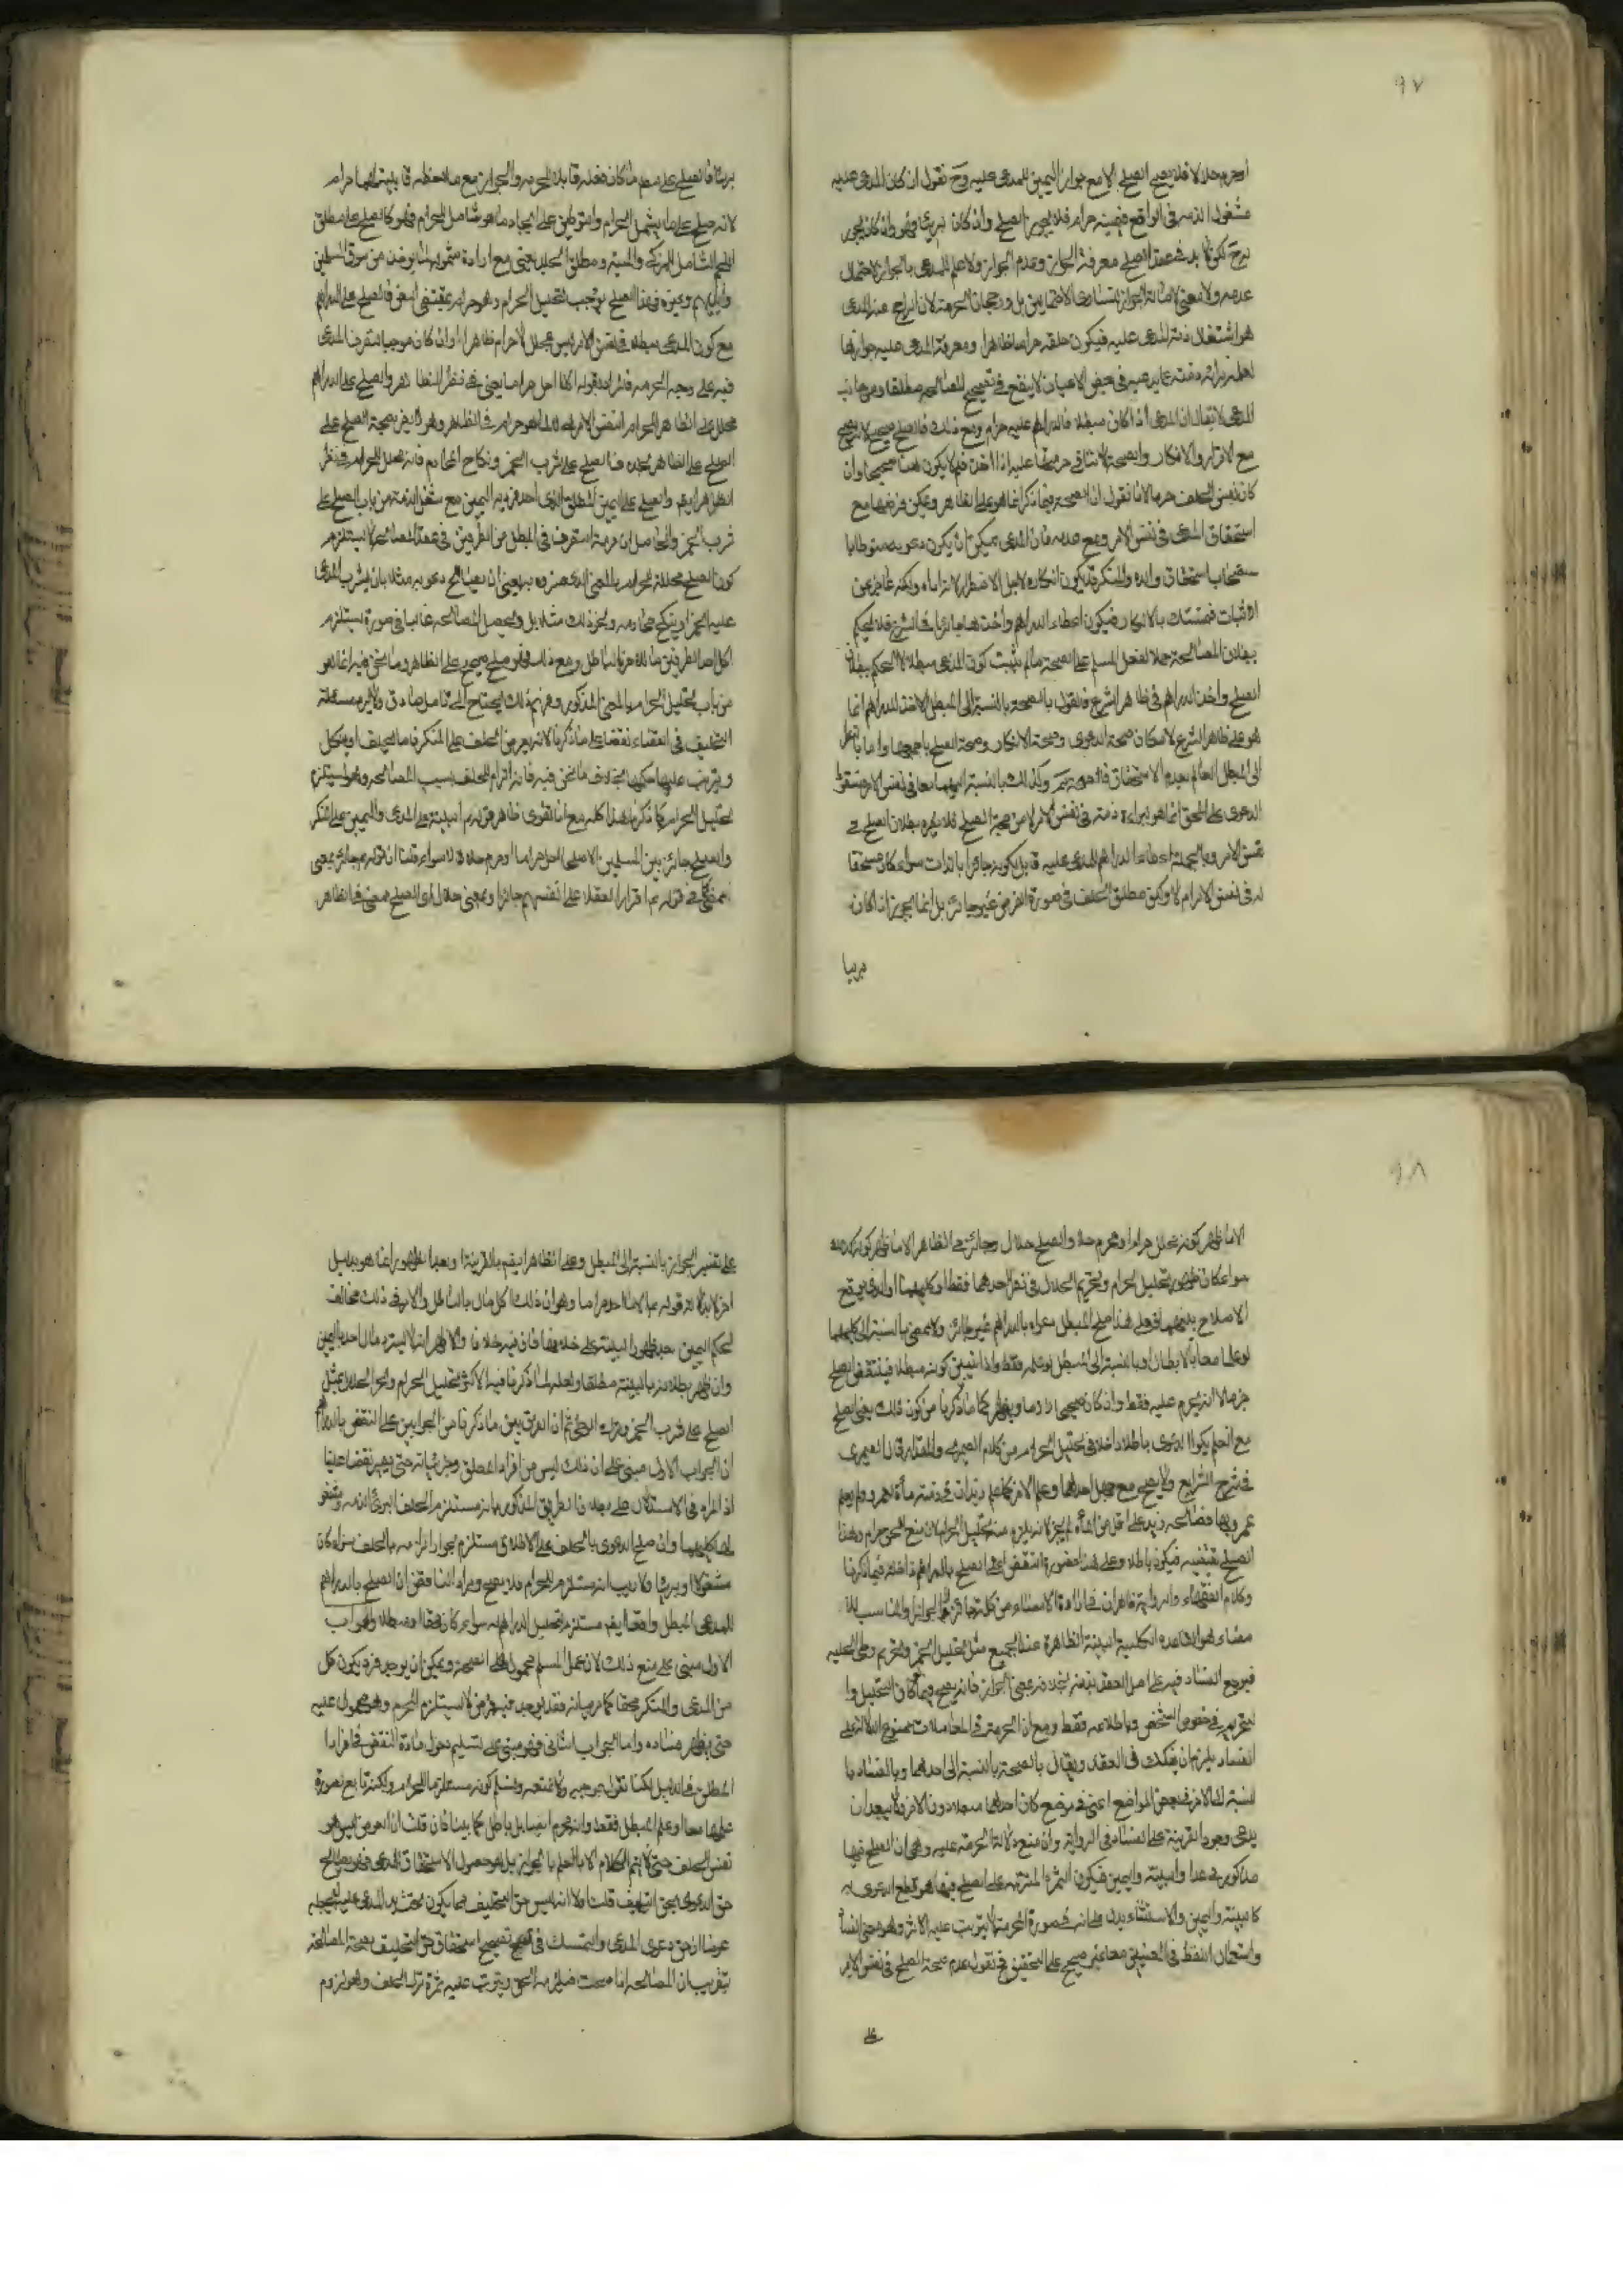 ٩٧
او حرم حلالا فلا يصح الصلح الا مع جواز اليمين للمدعى عليه وح نقول ان كان المدعى عليه
مشغول الذمة فى الواقع فيمينه حرام فلا يجوز الصلح وان كان بريئا فهو وان كان يجوز
لكن لا بد فى عقد الصلح معرفة الجواز وعدم الجواز ولا علم للمدعى بالجواز لاحتمال
عدمه ولا معنى لاصالة الجواز لتساوى الاحتمالين بل ورجحان الحرمة لان الراجح عند المدعى
هو اشتغال ذمة المدعى عليه فيكون حلفه حراما ظاهرا ومعرفة المدعى عليه جوازها
لعلمه ببرائة ذمته عما يدعيه فى بعض الاحيان لا ينفع فى تصحيح المصالحه مطلقا ومن جانب
المدعى لا يقال ان المدعى اذا كان مبطلا فالدراهم عليه حرام ومع ذلك فالصلح صحيح
مع الاقرار والانكار والصحة لا تنافى حرمتها عليه اذا اخذ فلم لا يكون هنا صحيحا وان
كان نفس الحلف حراما لانا نقول ان الصحة فيما ذكر انما هو على الظاهر ويمكن فرضها مع
استحقاق المدعى فى نفس الامر ومع عدمه فان المدعى يمكن ان يكون دعويه منوطا با
ستصحاب استحقاق والده والمنكر قد يكون انكاره لاجل الاضطرار لابراء اباه ولكنه عاجز عن
الاثبات فيتمسك بالانكار فيكون اعطاء الدراهم واخذها جائزا فى الشرع فلا يحكم
ببطلان المصالحة حملا لفعل المسلم على الصحة ما لم يثبت كون المدعى مبطلا لا الحكم ببطلان
الصلح واخذ الدراهم فى ظاهر الشرع فالقول بالصحة بالنسبة الى المبطل الاخذ للدراهم انما
هو على ظاهر الشرع لامكان صحة الدعوى وصحة الانكار وصحة الصلح باجمعها واما بالنظر
الى المبطل العالم بعدم الاستحقاق فالصحة وكذلك بالنسبة اليهما معا فى نفس الامر وسقوط
الدعوى على المحق انما هو ابراء ذمته فى نفس الامر لا من جهة الصلح فلا يضره بطلان الصلح فى
نفس الامر وبالجملة اعطاء الدراهم للمدعى عليه قابل لكونه جائزا بالذات سواء كان مستحقا
له فى نفس الامر ام لا ولكن مطلق الحلف فى صورة الفرض غير جائز بل انما يجوز اذا كان
بريئا
بريئا فالصلح على مطلق ما كان فعله قابلا للحرمه والجواز مع ملاحظه قابليته لهما حرام
لانه صلح على ما يشمل الحرام وامر توطين على ايجاد ما هو شامل للحرام فهو كالصلح على مطلق
اللحم الشامل للمذكى والميتة ومطلق الجلد يعنى مع ارادة شموله لما يوخذ من سوق المسلمين
وايديهم وغيره فهذا الصلح يوجب لتحليل الحرام وهو حرام بمقتضى النص فالصلح على الدراهم
مع كون المدعى مبطلا فى نفس الامر ليس بمحلل لأحرام ظاهرا وان كان موجبا لتصرف المدعى
فيه على وجه الحرمه فالمراد بقوله الا ما احل حراما يعنى فى نظر الظاهر والصلح على الدراهم
محلل على الظاهر الحرام النفس الامرى لا لما هو حرام فى الظاهر وهو لا يضر بصحة الصلح على
الصلح على الظاهر بخلاف الصلح على شرب الخمر ونكاح المحارم فانه محلل للحرام فى نظر
الظاهر ايضا والصلح على اليمين المطلق الذى احد فرديه اليمين مع شغل الذمة من باب الصلح على
شرب الخمر والحاصل ان حرمة التصرف فى المبطل من الطرفين فى عقد المصالحة لا يستلزم
كون الصلح محللا للحرام بالمعنى الذى فسروه به يعنى ان يصالح دعويه مثلا بان يشرب المدعى
عليه الخمر او ينكح محارمه ونحو ذلك مثلا بل ويحصل المصالحه غالبا فى صورة يستلزم
اكل احد الطرفين مال الاخر بالباطل ومع ذلك فهو صلح صحيح على الظاهر وما نحن فيه انما هو
من باب تحليل الحرام بالمعنى المذكور وفهم ذلك يحتاج الى تامل صادق ولا يرد مسئلة
التحليف فى القضاء نقضا على ما ذكرنا لانه يعرض الحلف على المنكر فاما يحلف او ينكل
ويترتب عليهما حكمهما بخلاف ما نحن فيه فانه الزام للحلف بسبب المصالحه وهو يستلزم
لتحليل الحرام كما ذكرنا هذا كله مع انا نقول ظاهر قوله ع البينة على المدعى واليمين على المنكر
والصلح جائز بين المسلمين الا صلحا احل حراما او حرم حلالا سواء قلنا ان قوله ع جائز بمعنى
ممضى كما فى قوله ع اقرار العقلاء على انفسهم جائز او بمعنى حلال اى الصلح ممضى فى الظاهر
٩٨
الا ما ظهر كونه محلل حرام او محرم حلال والصلح حلال وجائز فى الظاهر الا ما ظهر كونه كذلك
سواء كان ظهور تحليل الحرام وتحريم الحلال فى نظر احدهما فقط او كليهما او الذى يوقع
الاصلاح بينهما فعلى هذا صلح المبطل دعواه بالدراهم غير جائز ولا ممضى بالنسبة الى كليهما
لو علما معا بالابطال او بالنسبة الى المبطل لو علم فقط واذا تبين كونه مبطلا فينتقض الصلح
جزما لا انه يحرم عليه فقط وان كان صحيحا لازما ويظهر مما ذكرنا من كون ذلك يعنى الصلح
مع العلم بكون الدعوى باطلا داخلا فى تحليل الحرام من كلام الصيمرى والمقداد قال الصيمرى
فى شرح الشرايع ولا يصح مع جهل احدهما وعلم الاخر كما لو علم زيد ان فى ذمته مأة لعمرو ولم يعلم
عمرو بها فصالحه زيد على اقل من المأة لم يجز لانه يلزم منه تحليل الحرام لان منع الحق حرام وهذا
الصلح يقتضيه فيكون باطلا وعلى هذا فصورة النقض اى الصلح بالدراهم داخلة فيما ذكرنا
وكلام الفقهاء والرواية ظاهران فى ارادة الاستثناء من كلمة جائز والجواز والمناسب للا
مضاء هو القاعدة الكلية البينة الظاهرة عند الجميع مثل تحليل الخمر وتحريم وطى الحليله
فيرجع الفساد فيه على اصل العقد بذاته بخلاف معنى الجواز فانه يصح فيما كان التحليل وا
لتحريم فى خصوص الشخص وباطلاعه فقط ومع ان الحرمة فى المعاملات ممنوع الدلالة على
الفساد يلزم ان يفكك فى العقد ويقال بالصحة بالنسبة الى احدهما وبالفساد با
لنسبة الى الاخر فى بعض المواضع اعنى فى موضع كان احدهما مبطلا دون الاخر ولا يبعد ان
يدعى وجود القرينة على الفساد فى الرواية وان منع دلالة الحرمة عليه وهى ان الصلح فيها
مذكور فى عداد البينة واليمين فيكون الثمرة المترتبه على الصلح فيها هو قطع الدعوى به
كالبينة واليمين والاستثناء يدل على انه فى صورة الحرمة لا يترتب عليه الاثر وهو معنى الفساد
واستعمال اللفظ فى المعنيين معا غير صحيح على التحقيق فح نقول عدم صحة الصلح فى نفس الامر
على
على تفسير الجواز بالنسبة الى المبطل وعلى الظاهر ايضا بالقرينة او بعد الظهور انما هو بدليل
اخر لا بدلالة قوله ع الا ما احل حراما وهو ان ذلك اكل مال بالباطل والامر فى ذلك مخالف
لحكم اليمين بعد ظهور البينة على خلافها فان فيه خلاف والاظهر انه لا يسترد مال احد باليمين
وان ظهر بطلانه بالبينة مطلقا ولعله لما ذكرنا فسر الاكثر تحليل الحرام وتحريم الحلال بمثل
الصلح على شرب الخمر وترك الوطى ثم ان الفرق بين ما ذكرنا من الجوابين على النقض بالدراهم
ان الجواب الاول مبنى على ان ذلك ليس من افراد المطلق وجزئياته حتى يصير نقضا علينا
اذ المراد فى الاستدلال على بطلان الطريق المذكور بانه مستلزم لحلف البرئ الذمه ومشغو
لها كليهما وان صلح الدعوى بالحلف على الاطلاق مستلزم لجواز الزامه بالحلف سواء كان
مشغولا او بريئا ولا ريب انه مستلزم للحرام فلا يصح ومراد الناقض ان الصلح بالدراهم
للمدعى المبطل واقعا ايضا مستلزم لتحليل الدراهم له سواء كان محقا او مبطلا والجواب
الاول مبنى على منع ذلك لان عمل المسلم محمول على الصحة ويمكن ان يوجد فرد يكون كل
من المدعى والمنكر محقا كما مر بيانه فقد يوجد فيه فرد من لا يستلزم المحرم وهو محمول عليه
حتى يظهر فساده واما الجواب الثانى فهو مبنى على تسليم دخول مادة النقض فى افراد
المطلق فى الدليل لكنا نقول بموجبه ولا نمنعه ونسلم كونه مستلزما للحرام ولكنه تابع لصورة
علمهما معا او علم المبطل فقط وانه محرم ايضا بل باطل كما بينا فان قلت ان العوض ليس هو
نفس الحلف حتى لا يتم الكلام الا بالعلم بالجواز بل هو حصول الاستحقاق للمدعى فهو يصالح
حق الدعوى بحق التحليف قلت اولا انه ليس حق التحليف مما يكون مختصا بالمدعى عليه ليجعله
عوضا عن حق دعوى المدعى والتمسك فى تصحيح استحقاق حق التحليف بصحة المصالحة
بتقريب ان المصالحه اذا صحت فيلزمه الحق ويترتب عليه ثمرة ترك الحلف وهو لزوم